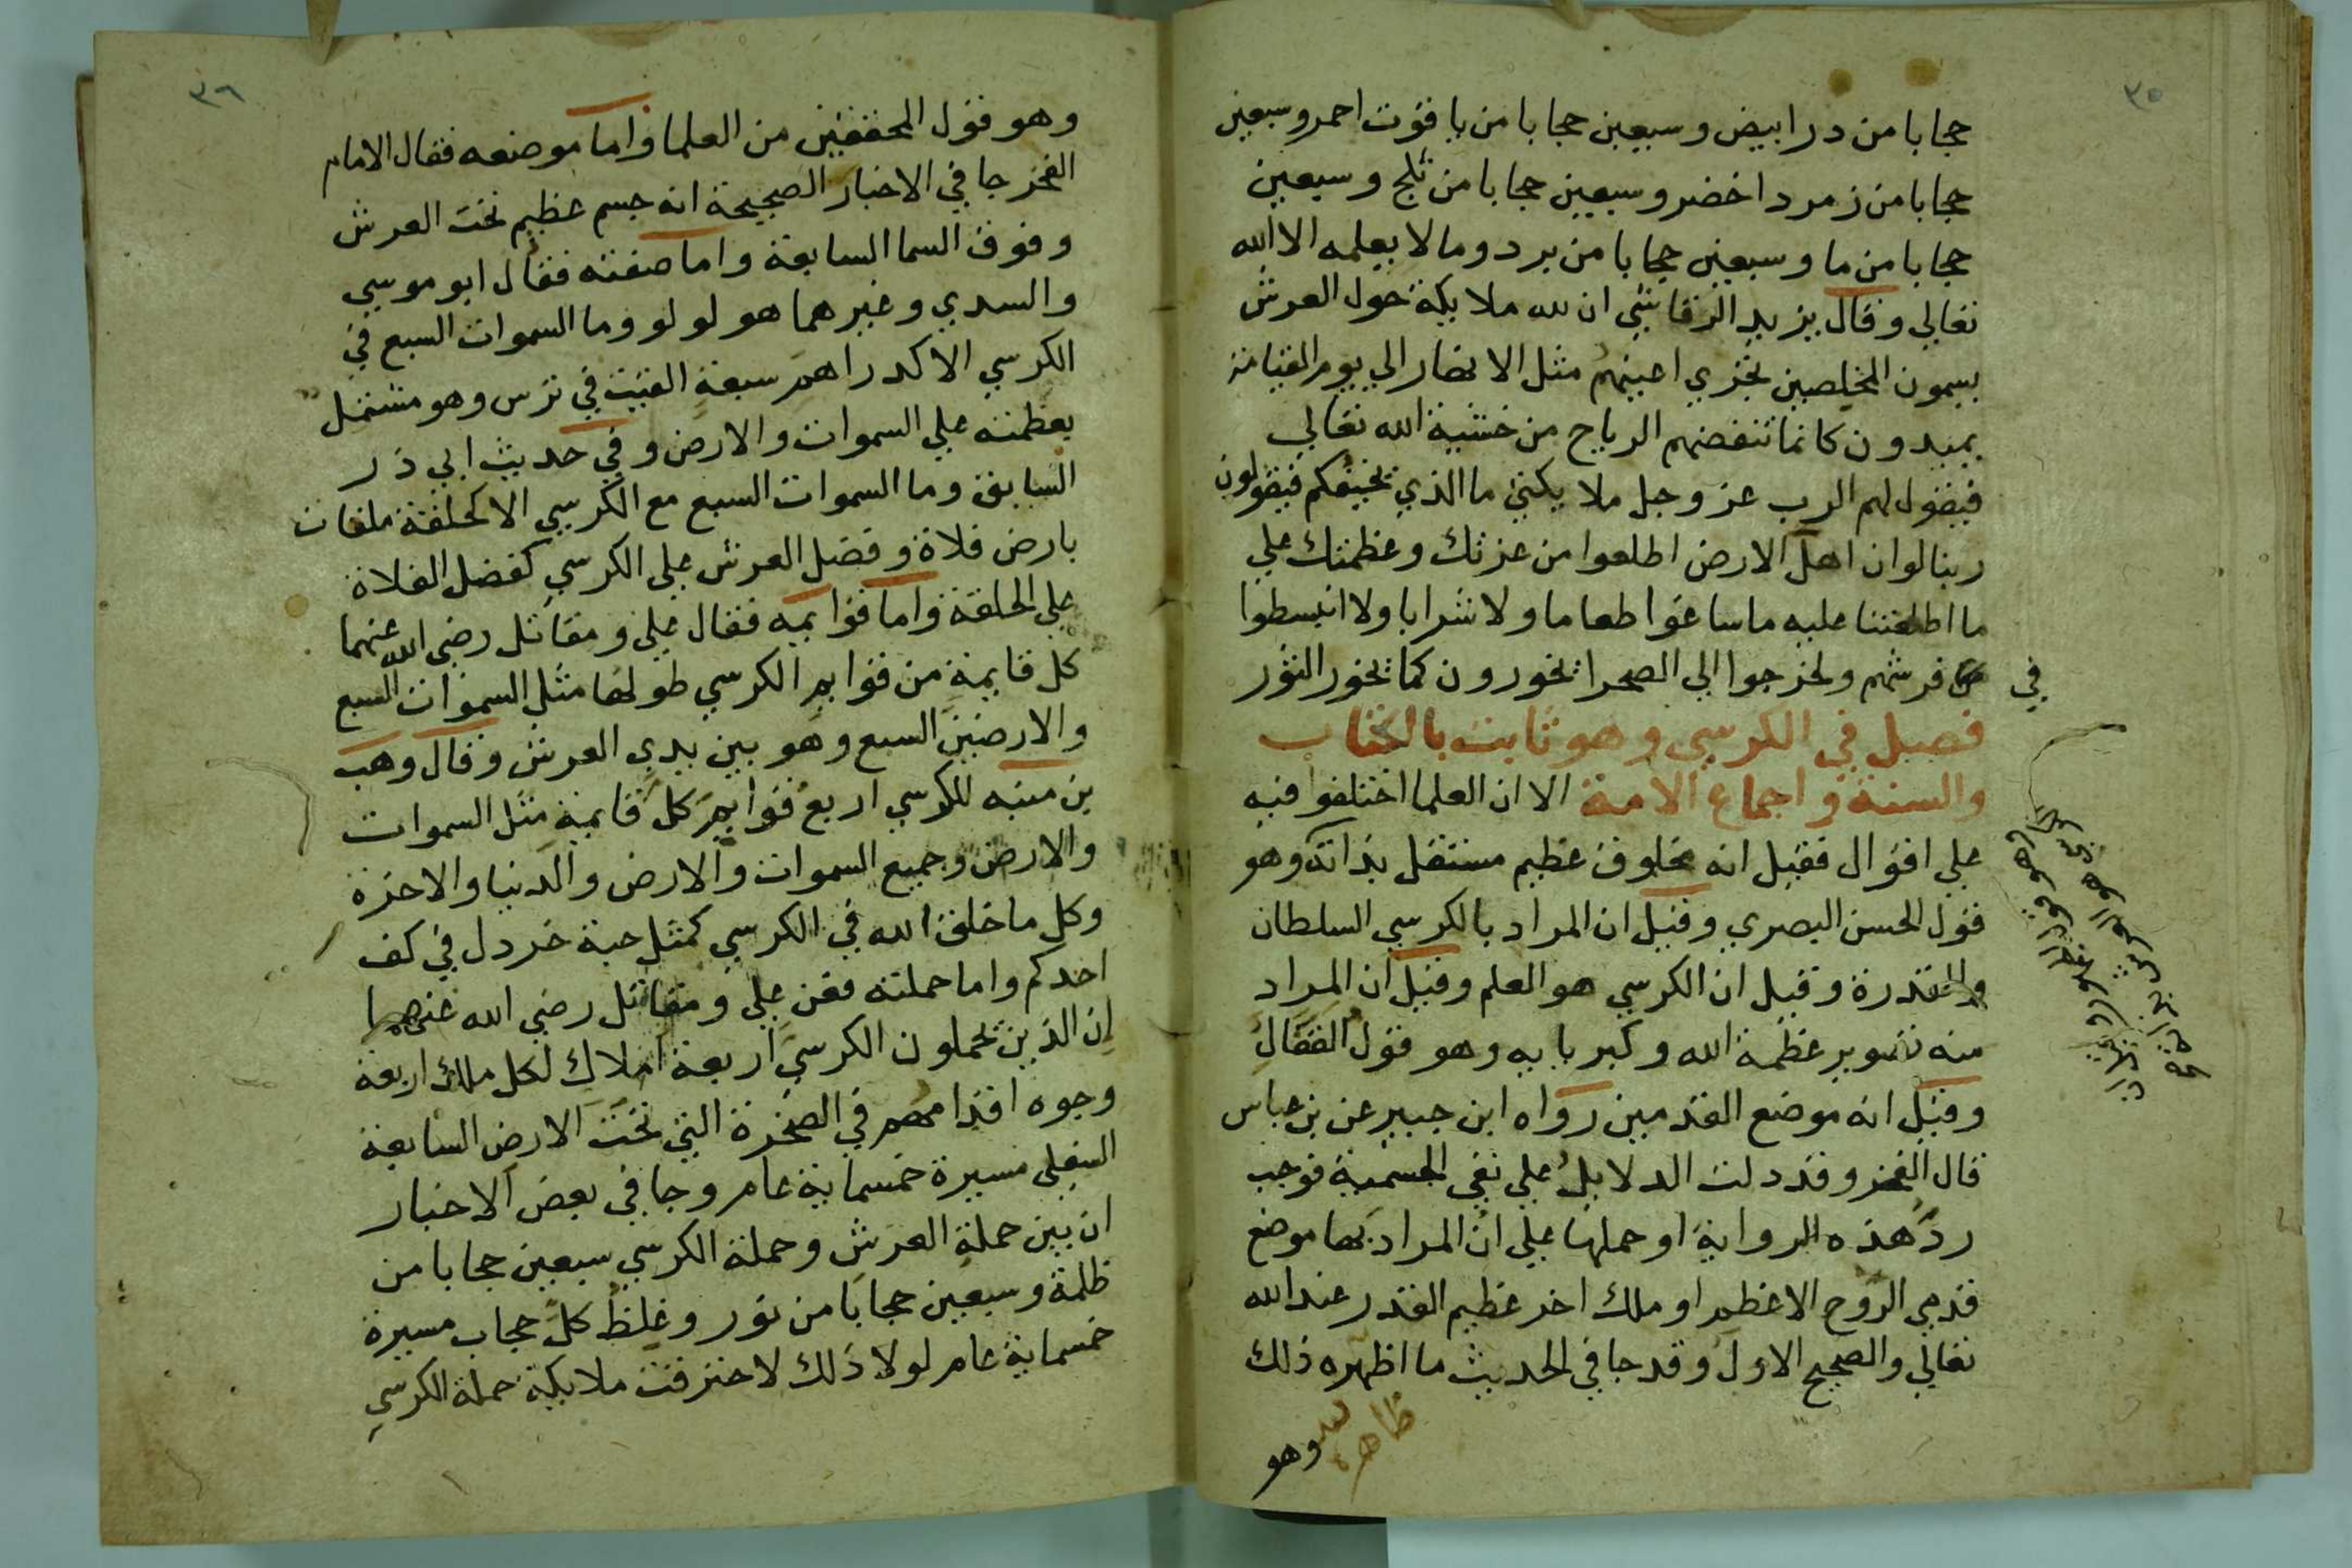 ٣٥
حجابا من در ابيض وسبعين حجابا من ياقوت احمر وسبعين
حجابا من زمرد اخضر وسبعين حجابا من ثلج وسبعين
حجابا من ما وسبعين حجابا من برد وما لا يعلمه الا الله
تعالي وقال يزيد الرقاشي ان لله ملايكة حول العرش
يسمون المخلصين تجري اعينهم مثل الانهار الي يوم القيامة
يميدون كانما تنفضهم الرياح من خشية الله تعالي
فيقول لهم الرب عز وجل ملايكتي ما الذي يخيفكم فيقولون
ربنا لو ان اهل الارض اطلعوا من عزتك وعظمتك علي
ما اطلعتنا عليه ما ساغوا طعاما ولا شرابا ولا انبسطوا
في فرشهم ولخرجوا الي الصحرا يخورون كما يخور الثور
فصل في الكرسي وهو ثابت بالكتاب
والسنة واجماع الامة الا ان العلما اختلفوا فيه
علي اقوال فقيل انه مخلوق عظيم مستقل بذاته وهو
قول الحسن البصري وقيل ان المراد بالكرسي السلطان
والقدرة وقيل ان الكرسي هو العلم وقيل ان المراد
منه تصوير عظمة الله وكبريايه وهو قول القفال
وقيل انه موضع القدمين رواه ابن جبير عن بن عباس
قال الفخر وقد دلت الدلايل علي نفي الجسمية فوجب
رد هذه الرواية او حملها علي ان المراد بها موضع
قدمي الروح الاعظم او ملك اخر عظيم القدر عند الله
تعالي والصحيح الاول وقد جا في الحديث ما اظهره ذلك
ظاهره
وهو
٣٦
وهو قول المحققين من العلما واما موضعه فقال الامام
الفخر جا في الاخبار الصحيحة انه جسم عظيم تحت العرش
وفوق السما السابعة واما صفته فقال ابو موسي
والسدي وغيرهما هو لولو وما السموات السبع في
الكرسي الا كدراهم سبعة القيت في ترس وهو مشتمل
بعظمته علي السموات والارض وفي حديث ابي ذر
السابق وما السموات السبع مع الكرسي الا كحلقة ملقات
بارض فلاة وفضل العرش علي الكرسي كفضل الفلاة
علي الحلقة واما قوايمه فقال علي ومقاتل رضي الله عنهما
كل قايمة من قوايم الكرسي طولها مثل السموات السبع
والارضين السبع وهو بين يدي العرش وقال وهب
بن منبه للكرسي اربع قوايم كل قايمة مثل السموات
والارض وجميع السموات والارض والدنيا والاخرة
وكل ما خلق الله في الكرسي كمثل حبة خردل في كف
احدكم واما حملته فعن علي ومقاتل رضي الله عنهما
ان الذين يحملون الكرسي اربعة املاك لكل ملك اربعة
وجوه اقدامهم في الصخرة التي تحت الارض السابعة
السفلي مسيرة خمسماية عام وجا في بعض الاخبار
ان بين حملة العرش وحملة الكرسي سبعين حجابا من
ظلمة وسبعين حجابا من نور وغلظ كل حجاب مسيرة
خمسماية عام لولا ذلك لاحترقت ملايكة حملة الكرسي